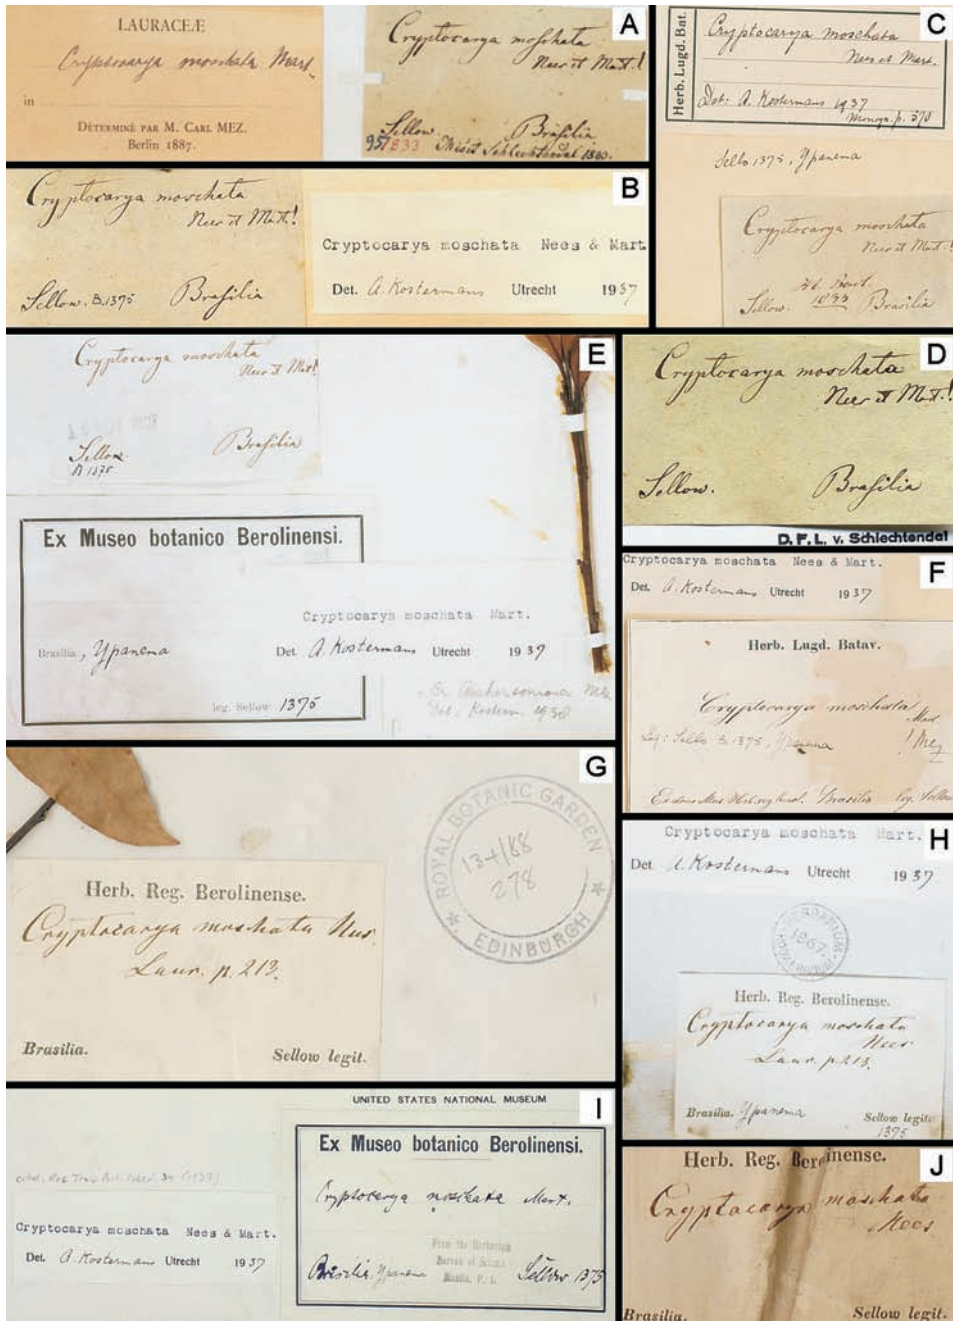 A
LAURACEÆ
Cryptocarya moschata Mart.
in
DÉTERMINÉ PAR M. CARL MEZ.
Berlin 1887.
Cryptocarya moschata
Nees et Mart.!
Sellow. Brasilia
957833 Misit Schlechtendal
B
Cryptocarya moschata
Nees et Mart!
Sellow. B.1375 Brasilia
Cryptocarya moschata Nees & Mart
Det. A. Kostermans Utrecht 1937
C
Herb. Lugd. Bat.
Cryptocarya moschata
Nees et Mart.
Det: A. Kostermans 1937
Monogr. p. 570
Sello 1375, Ypanema
Cryptocarya moschata
Nees et Mart!
Sellow. Brasilia
D
Cryptocarya moschata
Nees et Mart.!
Sellow. Brasilia
D. F. L. v. Schlechtendal
E
Cryptocarya moschata
Nees et Mart!
Sellow Brasilia
B 1375
Ex Museo botanico Berolinensi.
Brasilia, Ypanema
leg. Sellow 1375
Cryptocarya moschata Mart.
Det. A. Kostermans Utrecht 1937
Cr. Aschersoniana Mez
Det. Kosterm. 1938
F
Cryptocarya moschata Nees & Mart.
Det. A. Kostermans Utrecht 1937
Herb. Lugd. Batav.
Cryptocarya moschata
Mart.
Leg: Sello B.1375, Ypanema ! Mez
Brasilia leg. Sellow
G
ROYAL BOTANIC GARDEN
EDINBURGH
278
Herb. Reg. Berolinense.
Cryptocarya moschata Nees.
Laur. p. 213.
Brasilia. Sellow legit.
H
Cryptocarya moschata Mart.
Det A. Kostermans Utrecht 1937
HERBARIUM
1867
Herb. Reg. Berolinense.
Cryptocarya moschata
Nees
Laur. p. 213.
Brasilia. Ypanema Sellow legit.
1375
I
UNITED STATES NATIONAL MUSEUM
Cryptocarya moschata Nees & Mart.
Det. A. Kostermans Utrecht 1937
Ex Museo botanico Berolinensi.
Cryptocarya moschata Mart.
From the Herbarium
Bureau of Science
Manila, P. I.
Brasilia, Ypanema Sellow 1375
J
Herb. Reg. Berolinense.
Cryptocarya moschata
Nees
Brasilia. Sellow legit.